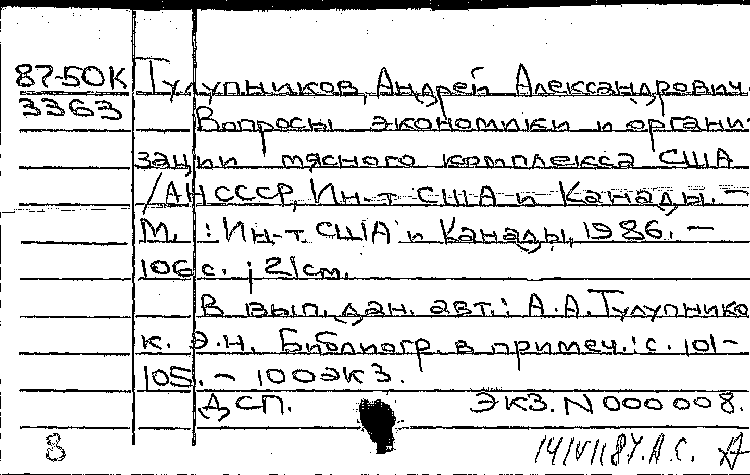 87-50К Тулупников, Андрей Александрович.
3363
Вопросы экономики и органи-
зации мясного комплекса США
/АН СССР, Ин-т США и Канады. —
М. : Ин-т США и Канады, 1986. —
106 с. ; 21 см.
В вып. дан. авт.: А.А.Тулупников
к. э.н. Библиогр. в примеч.: с. 101-
105. — 100 экз.
ДСП. Экз. N 000008.
8 14/VII 87. А.С.